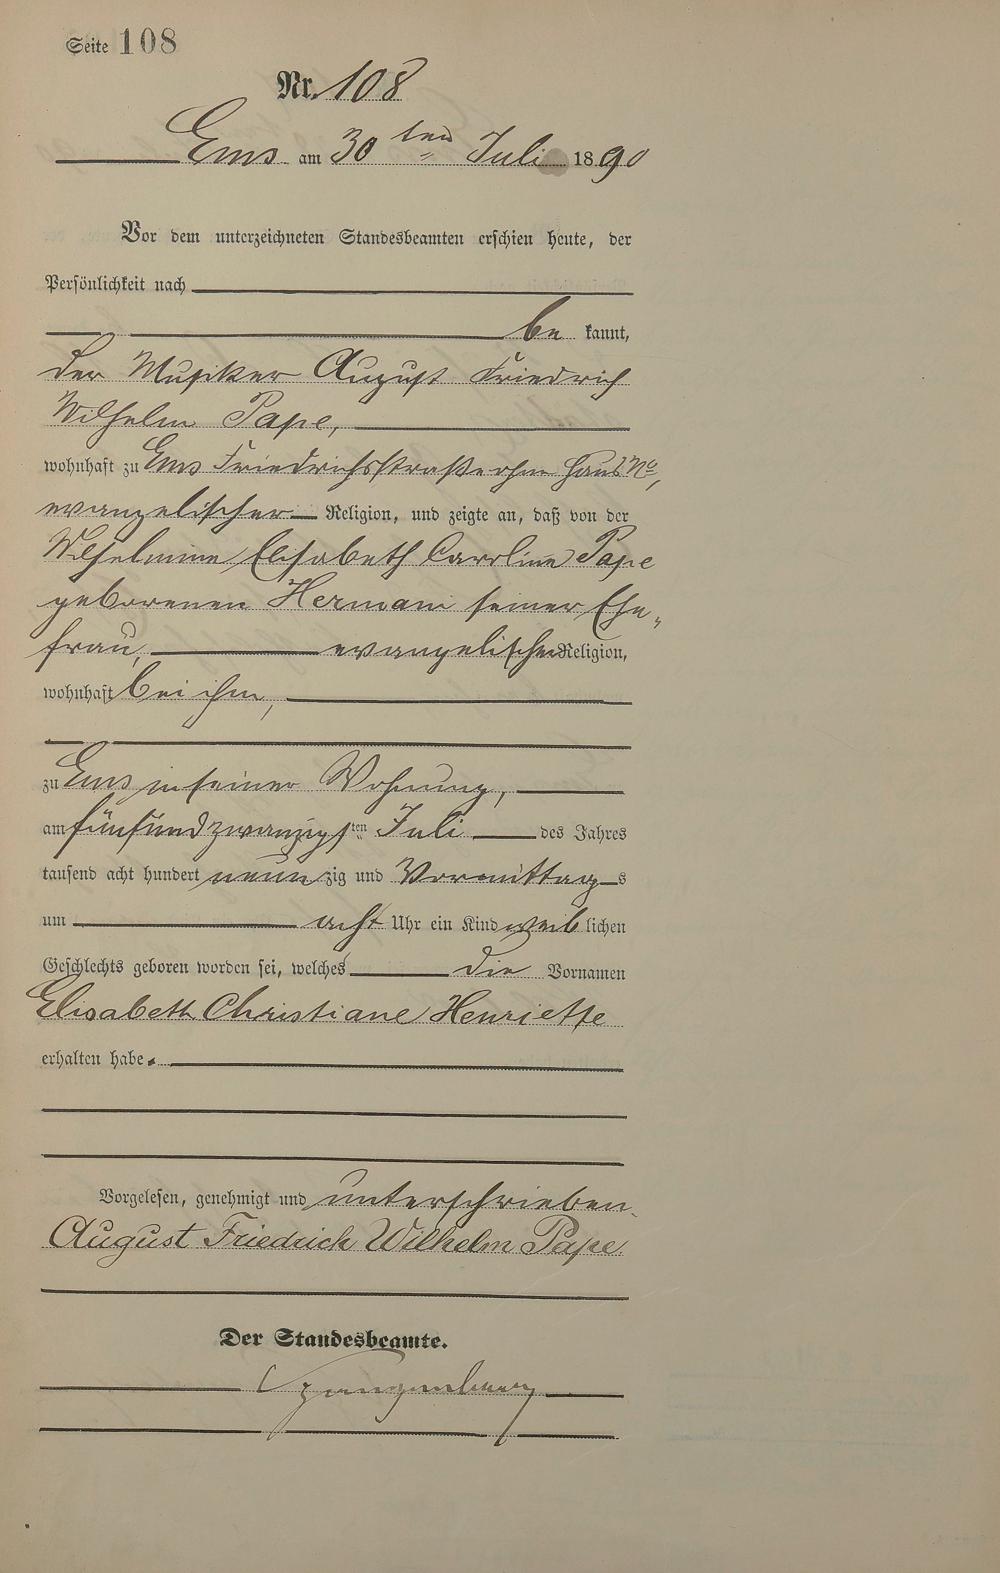 Seite 108
Nr. 108
Ems am 30ten Juli 1890
Vor dem unterzeichneten Standesbeamten erschien heute, der
Persönlichkeit nach
be kannt,
der Musiker August Friedrich
Wilhelm Pape,
wohnhaft zu Ems Friedrichsstraße ohne Haus No,
evangelischer Religion, und zeigte an, daß von der
Wilhelmine Elisabeth Caroline Pape
geborenen Hermani seiner Ehe„
frau, evangelischer Religion,
wohnhaft bei ihm,
zu Ems in seiner Wohnung,
am fünfundzwanzigsten Juli des Jahres
tausend acht hundert neun zig und Vormittags
um acht Uhr ein Kind weib lichen
Geschlechts geboren worden sei, welches die Vornamen
Elisabeth Christiane Henriette
erhalten habe.
Vorgelesen, genehmigt und unterschrieben.
August Friedrich Wilhelm Pape.
Der Standesbeamte.